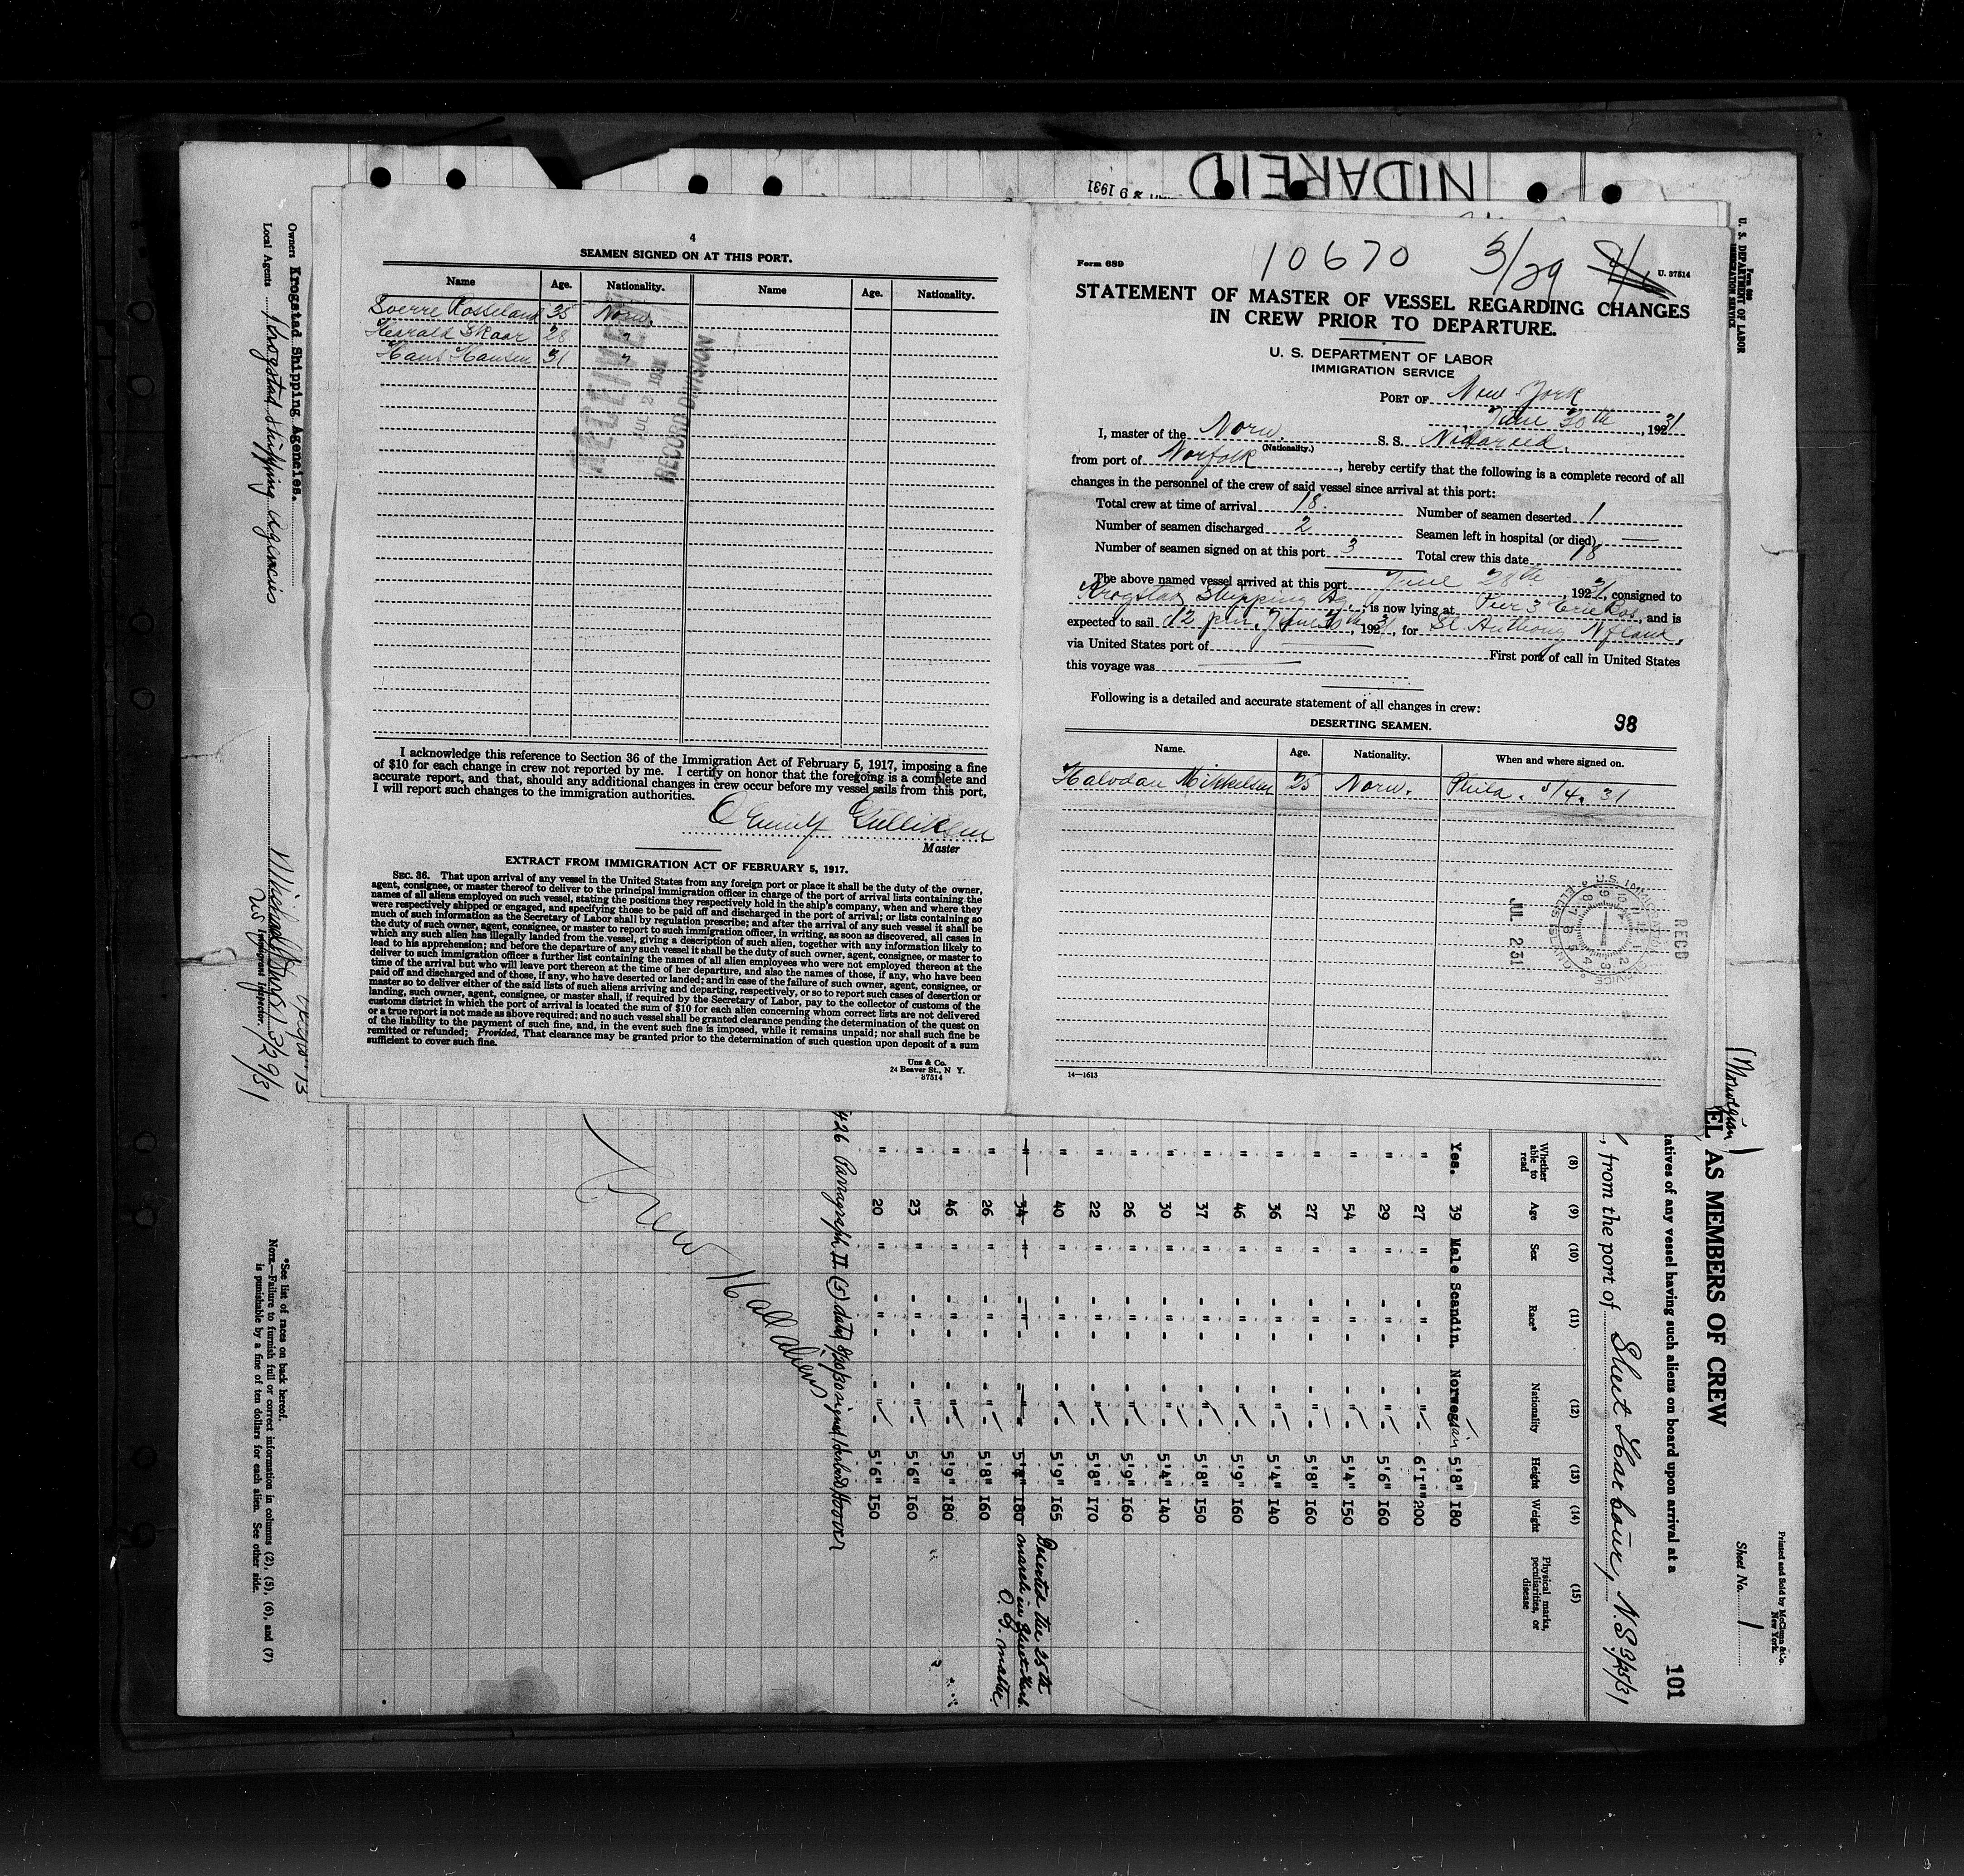 NIDAREID
9 1931
4
SEAMEN SIGNED ON AT THIS PORT.
Name Age. Nationality. Name Age. Nationality.
Sverre Rosseland 35 Norw.
Harald Skaar 28 "
Hans Hansen 31 "
RECEIVED
JUL 2 1931
RECORD DIVISION
I acknowledge this reference to Section 36 of the Immigration Act of February 5, 1917, imposing a fine
of $10 for each change in crew not reported by me. I certify on honor that the foregoing is a complete and
accurate report, and that, should any additional changes in crew occur before my vessel sails from this port,
I will report such changes to the immigration authorities.
Gulliksen
Master
EXTRACT FROM IMMIGRATION ACT OF FEBRUARY 5, 1917.
SEC. 36. That upon arrival of any vessel in the United States from any foreign port or place it shall be the duty of the owner,
agent, consignee, or master thereof to deliver to the principal immigration officer in charge of the port of arrival lists containing the
names of all aliens employed on such vessel, stating the positions they respectively hold in the ship's company, when and where they
were respectively shipped or engaged, and specifying those to be paid off and discharged in the port of arrival; or lists containing so
much of such information as the Secretary of Labor shall by regulation prescribe; and after the arrival of any such vessel it shall be
the duty of such owner, agent, consignee, or master to report to such immigration officer, in writing, as soon as discovered, all cases in
which any such alien has illegally landed from the vessel, giving a description of such alien, together with any information likely to
lead to his apprehension; and before the departure of any such vessel it shall be the duty of such owner, agent, consignee, or master to
deliver to such immigration officer a further list containing the names of all alien employees who were not employed thereon at the
time of the arrival but who will leave port thereon at the time of her departure, and also the names of those, if any, who have been
paid off and discharged and of those, if any, who have deserted or landed; and in case of the failure of such owner, agent, consignee, or
master so to deliver either of the said lists of such aliens arriving and departing, respectively, or so to report such cases of desertion or
landing, such owner, agent, consignee, or master shall, if required by the Secretary of Labor, pay to the collector of customs of the
customs district in which the port of arrival is located the sum of $10 for each alien concerning whom correct lists are not delivered
or a true report is not made as above required; and no such vessel shall be granted clearance pending the determination of the quest on
of the liability to the payment of such fine, and, in the event such fine is imposed, while it remains unpaid; nor shall such fine be
remitted or refunded; Provided, That clearance may be granted prior to the determination of such question upon deposit of a sum
sufficient to cover such fine.
Uns & Co.
24 Beaver St., N Y.
37514
10670 3/29
Form 689
U. 37514
STATEMENT OF MASTER OF VESSEL REGARDING CHANGES
IN CREW PRIOR TO DEPARTURE.
U. S. DEPARTMENT OF LABOR
IMMIGRATION SERVICE
PORT OF New York
June 30th, 1931
I, master of the Norw. S. S. Nidareid,
(Nationality.)
from port of Norfolk, hereby certify that the following is a complete record of all
changes in the personnel of the crew of said vessel since arrival at this port:
Total crew at time of arrival 18. Number of seamen deserted 1
Number of seamen discharged 2 Seamen left in hospital (or died) —
Number of seamen signed on at this port 3 Total crew this date 18
The above named vessel arrived at this port June 28th, 1931, consigned to
Krogstad Shipping Ag., is now lying at Pier 3 Erie Bas, and is
expected to sail 12 pm. June 30th, 1931, for St Anthony Nfland.
via United States port of — First port of call in United States
this voyage was —
Following is a detailed and accurate statement of all changes in crew:
98
DESERTING SEAMEN.
Name. Age. Nationality. When and where signed on.
Halvdan Mikkelsen 25 Norw. Phila. 5/4. 31
U.S. IMMIGRATION SERVICE ELLIS ISLAND
JUL 2 31
RECD
14—1613
Owners Krogstad Shipping Agencies.
Local Agents Krogstad Shipping Agencies
3/29/31
US Immigrant Inspector.
*See list of races on back hereof.
NOTE.—Failure to furnish full or correct information in columns (2), (5), (6), and (7)
is punishable by a fine of ten dollars for each alien. See other side.
Form 689
U. S. DEPARTMENT OF LABOR
IMMIGRATION SERVICE
Printed and Sold by McClunn & Co.
New York.
Sheet No. 1
(Norwegian)
EL AS MEMBERS OF CREW
101
tatives of any vessel having such aliens on board upon arrival at a
, from the port of Sheet Harbour, N.S 3/25/31
(8) (9) (10) (11) (12) (13) (14) (15)
Whether able to read Age Sex Race* Nationality Height Weight Physical marks, peculiarities, or disease
Yes. 39 Male Scandin. Norwegian 5'8" 180
" 27 " -"- -"- 6'1" 200
" 29 " -"- -"- 5'6" 160
" 54 " -"- -"- 5'4" 150
" 27 " -"- -"- 5'8" 160
" 36 " -"- -"- 5'4" 140
" 46 " -"- -"- 5'9" 160
" 37 " -"- -"- 5'8" 150
" 30 " -"- -"- 5'4" 140
" 26 " -"- -"- 5'9" 160
" 22 " -"- -"- 5'8" 170
" 40 " -"- -"- 5'9" 165
" 34 " -"- -"- 5'8" 180 Deserted the 25th march in Sheet Harb. O. G. master
" 26 " -"- -"- 5'8" 160
" 46 " -"- -"- 5'9" 180
" 23 " -"- -"- 5'6" 160
" 20 " -"- -"- 5'6" 150
426 Parragraph II (5) dated 8/20/30 signed Herbert Hoover
Crew 16 all aliens